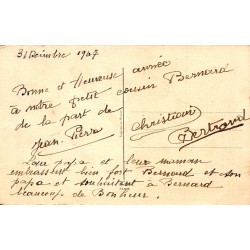 31 Décembre 1947
Bonne et Heureuse année
à notre petit cousin Bernard
de la part de
Jean Pierre
Christian
Bertrand
Leur papa et leur maman
embrassent bien fort Bernard et son
papa et souhaitent à Bernard
beaucoup de Bonheur.